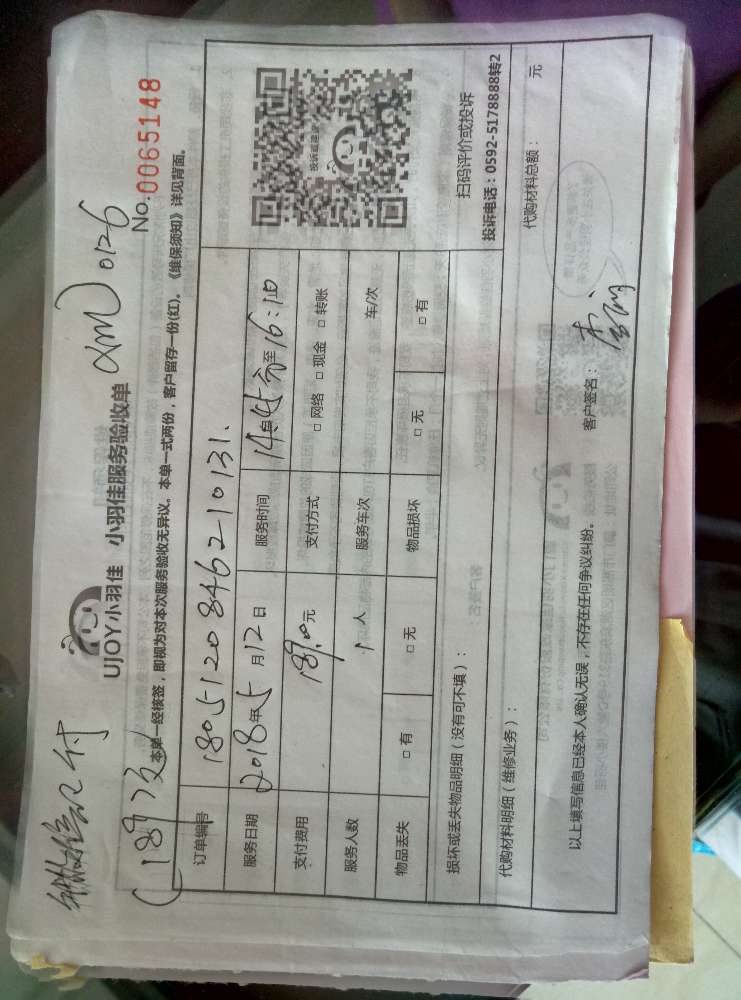 微信已付
(189次
UJOY小羽佳 小羽佳服务验收单
XM 0126
No.0065148
本单一经核签，即视为对本次服务验收无异议。本单一式两份，客户留存一份(红)。《维保须知》详见背面。
订单编号 1805120846210131.
服务日期 2018年5月12日 服务时间 14:45分至16:10
支付费用 189.0元 支付方式 □网络 □现金 □转账
服务人数 1人 服务车次 车/次
物品丢失 □有 □无 物品损坏 □无 □有
扫码评价或投诉
投诉电话：0592-5178888转2
损坏或丢失物品明细（没有可不填）：
代购材料明细（维修业务）： 代购材料总额： 元
以上填写信息已经本人确认无误，不存在任何争议纠纷。 客户签名：